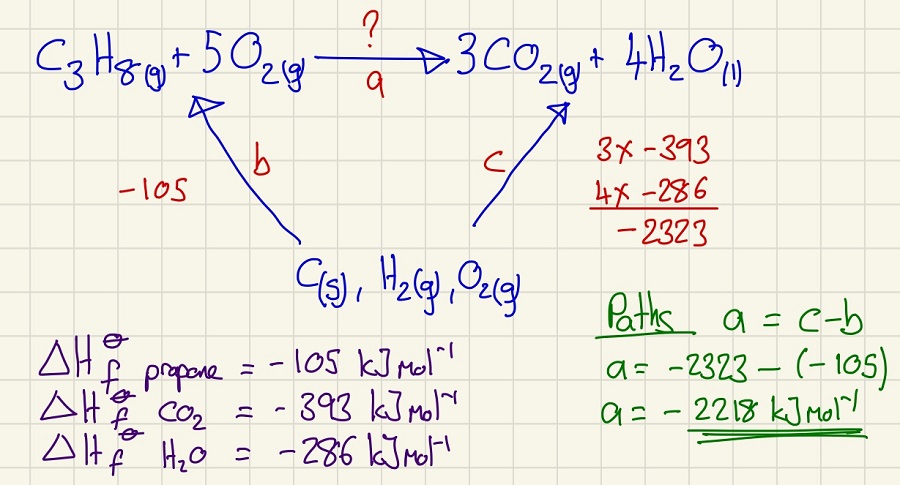 ?
C₃H₈(g) + 5O₂(g) → 3CO₂(g) + 4H₂O(l)
a
b
c
-105
3x -393
4x -286
-2323
C(s), H₂(g), O₂(g)
Paths a = c-b
a = -2323 - (-105)
a = -2218 kJmol⁻¹
ΔH⦵f propane = -105 kJmol⁻¹
ΔH⦵f CO₂ = -393 kJmol⁻¹
ΔH⦵f H₂O = -286 kJmol⁻¹